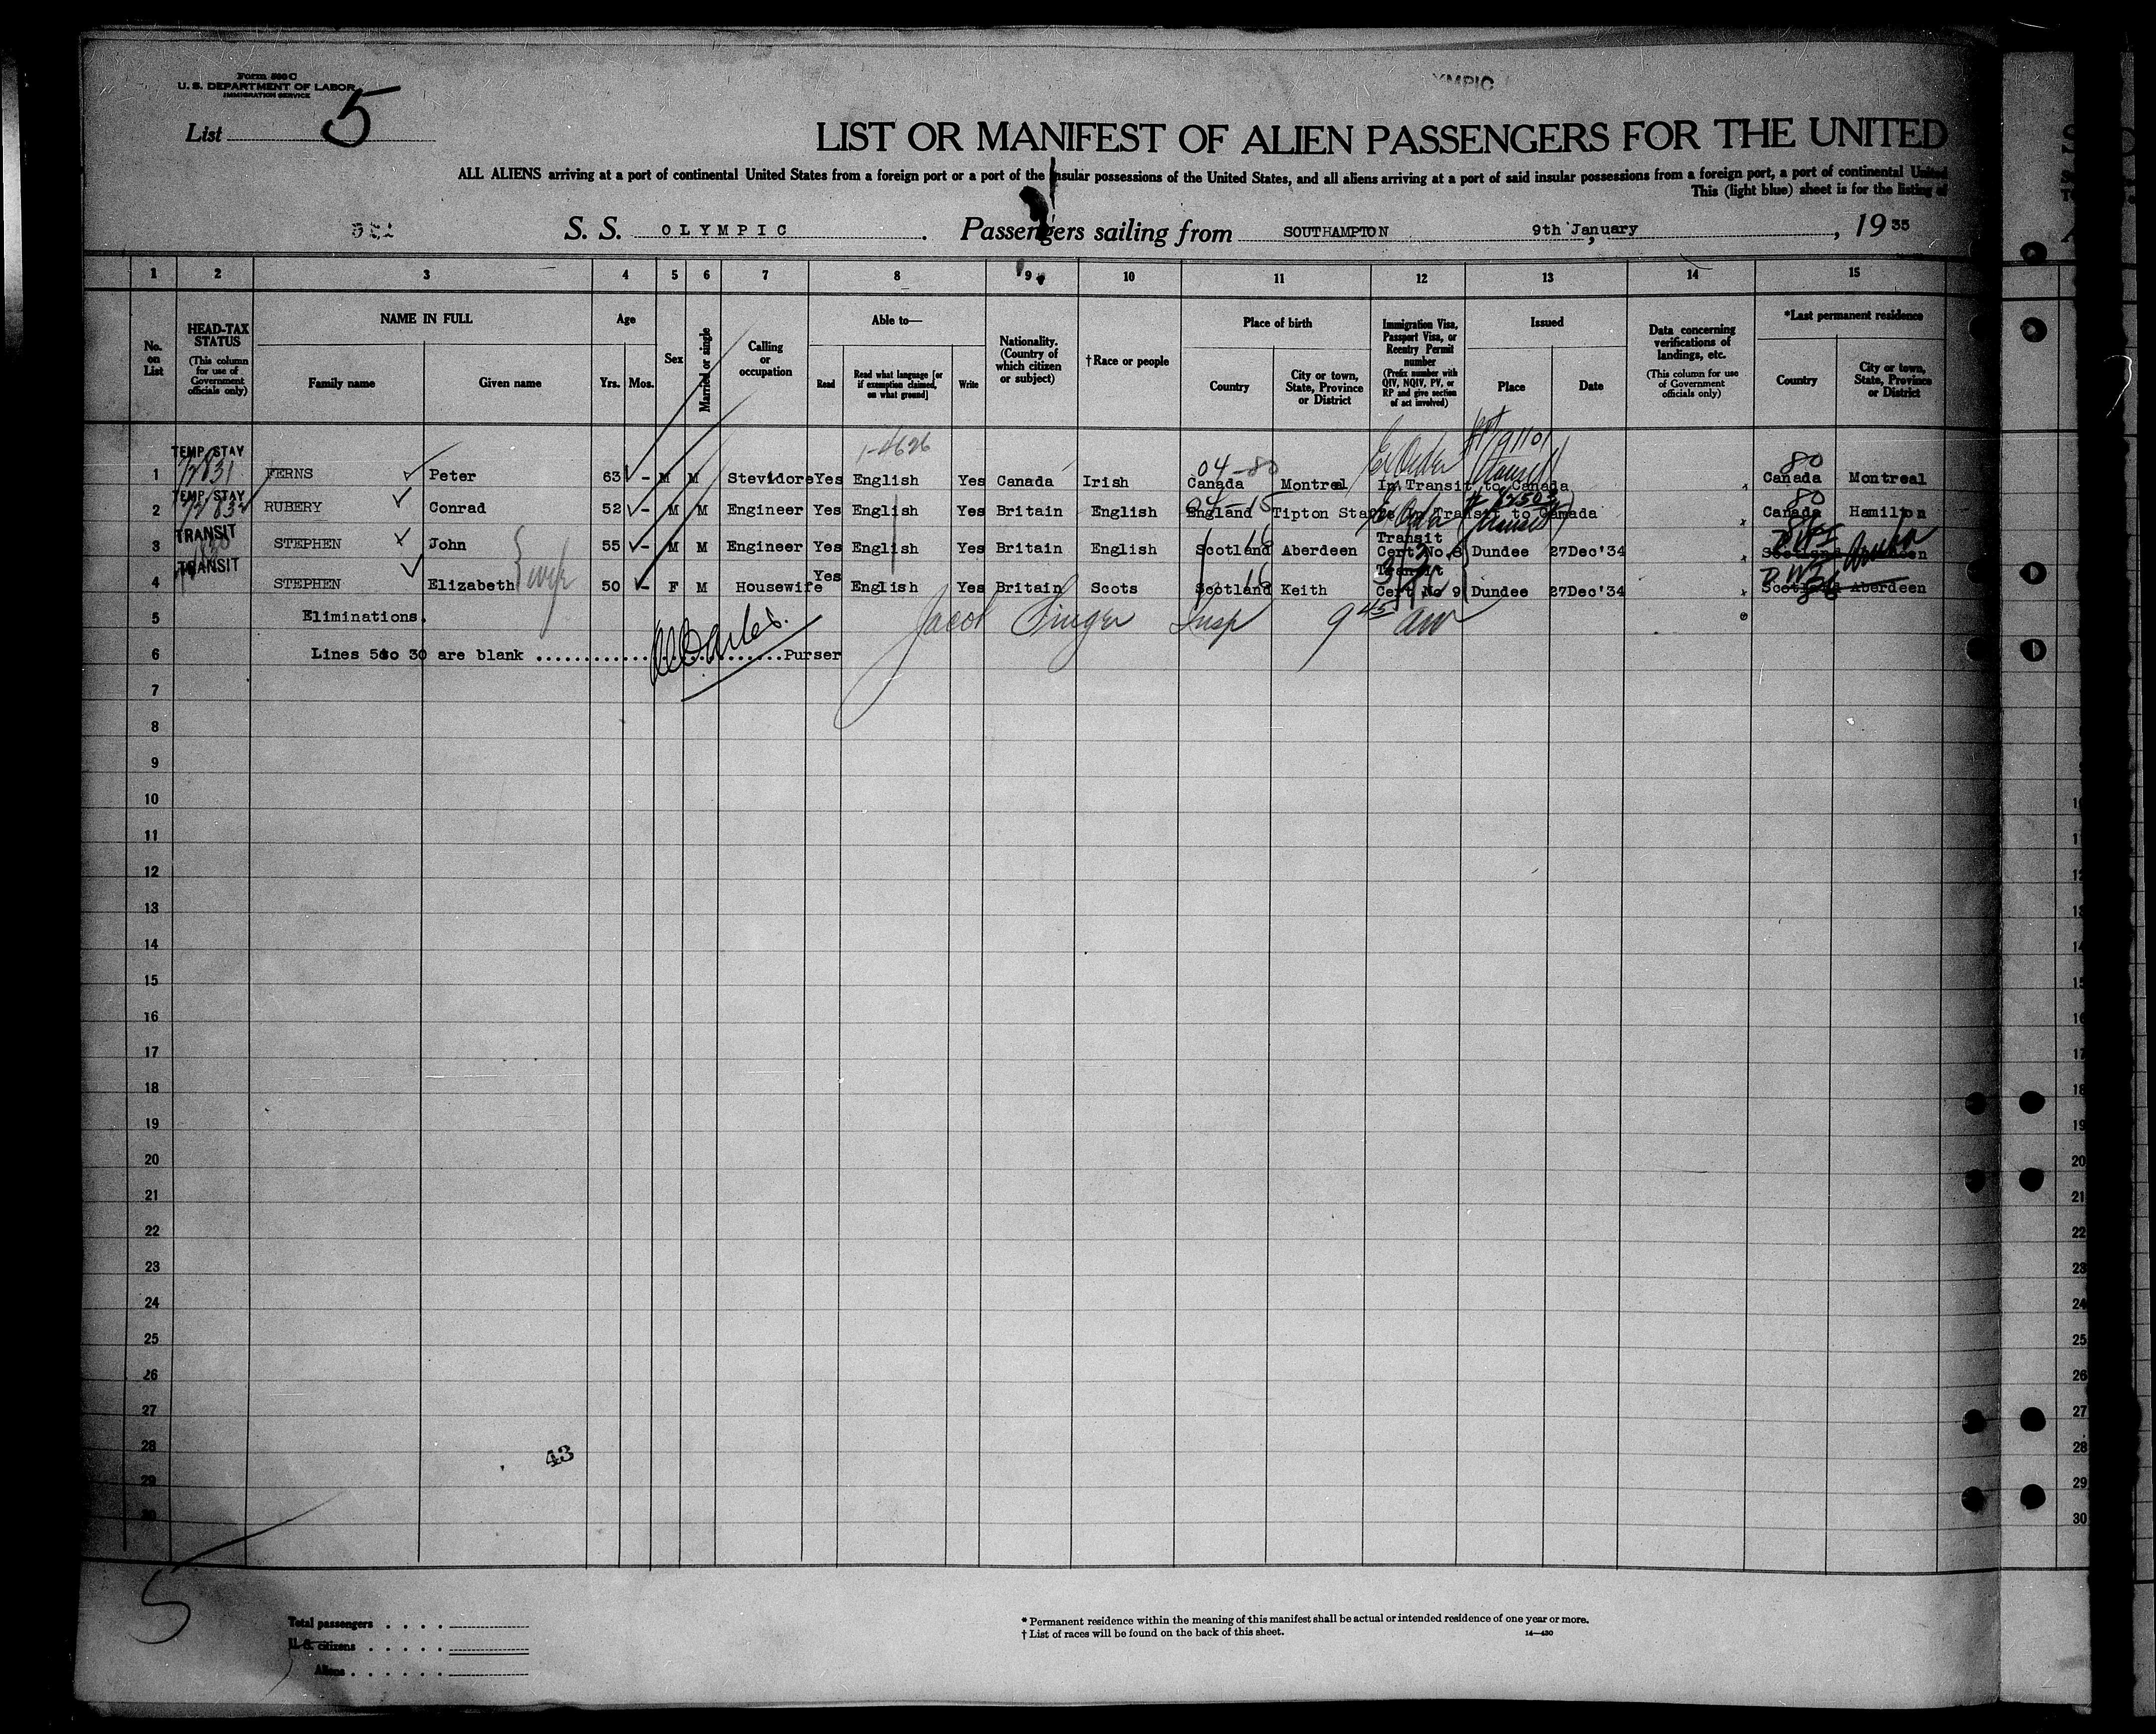 Form 500 C
U. S. DEPARTMENT OF LABOR
IMMIGRATION SERVICE
List 5
YMPIC
LIST OR MANIFEST OF ALIEN PASSENGERS FOR THE UNITED
ALL ALIENS arriving at a port of continental United States from a foreign port or a port of the insular possessions of the United States, and all aliens arriving at a port of said insular possessions from a foreign port, a port of continental United
This (light blue) sheet is for the listing of
S. S. OLYMPIC. Passengers sailing from SOUTHAMPTON 9th January, 1935
1 2 3 4 5 6 7 8 9 10 11 12 13 14 15
No. on List
HEAD-TAX STATUS (This column for use of Government officials only)
NAME IN FULL
Family name
Given name
Age
Yrs. Mos.
Sex
Married or single
Calling or occupation
Able to—
Read
Read what language [or if exemption claimed, on what ground]
Write
Nationality. (Country of which citizen or subject)
†Race or people
Place of birth
Country
City or town, State, Province or District
Immigration Visa, Passport Visa, or Reentry Permit number (Prefix number with QIV, NQIV, PV, or RP and give section of act involved)
Issued
Place
Date
Data concerning verifications of landings, etc. (This column for use of Government officials only)
*Last permanent residence
Country
City or town, State, Province or District
1-4626
04-80
80
1 TEMP STAY FERNS Peter 63 - M M Stevidore Yes English Yes Canada Irish Canada Montreal In Transit to Canada Canada Montreal
04-15
80
2 TEMP STAY RUBERY Conrad 52 - M M Engineer Yes English Yes Britain English England Tipton Transit to Canada Canada Hamilton
3 TRANSIT STEPHEN John 55 - M M Engineer Yes English Yes Britain English Scotland Aberdeen Transit Cert No. 8 Dundee 27Dec'34 Scotland Aberdeen Aruba
4 TRANSIT STEPHEN Elizabeth wife 50 - F M Housewife Yes English Yes Britain Scots Scotland Keith Transit Cert No 9 Dundee 27Dec'34 D W I Scotland Aberdeen
5 Eliminations.
Jacob Singer Insp 9 45 am
6 Lines 5 to 30 are blank ........................Purser
7
8
9
10
11
12
13
14
15
16
17
18
19
20
21
22
23
24
25
26
27
28
43
29
30
5
Total passengers . . . .
U. S. citizens . . . . .
Aliens . . . . . .
* Permanent residence within the meaning of this manifest shall be actual or intended residence of one year or more.
† List of races will be found on the back of this sheet.
14—430